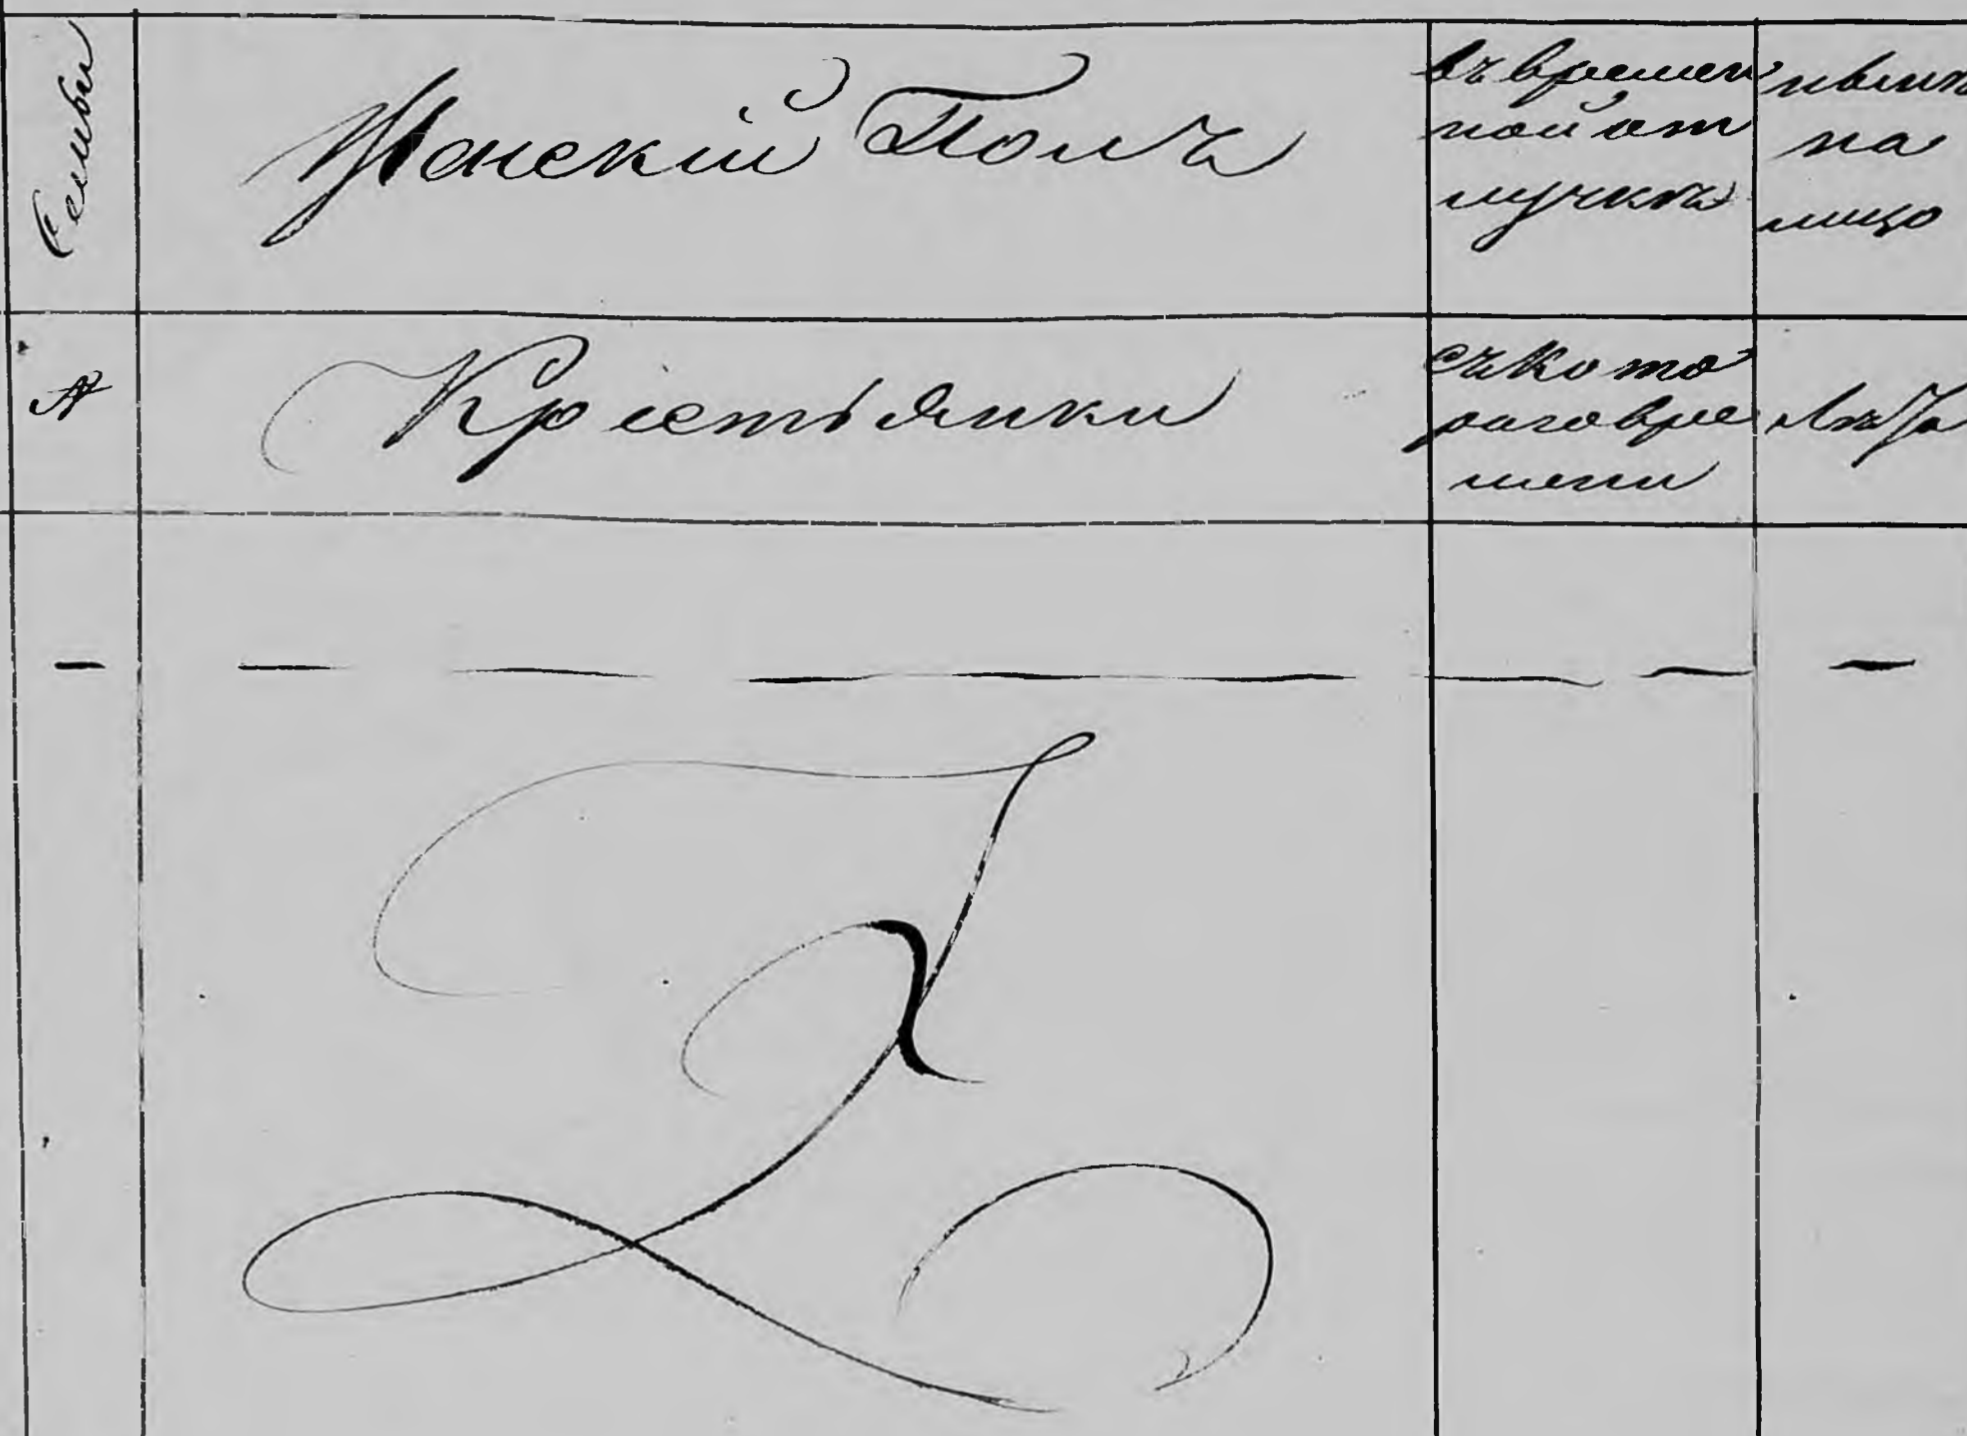 Семьи
Женскій Полъ
въ времен
ной от
лучкѣ
нынѣ
на
лицо
№
Крестьянки
съ кото
раго вре
мени
Лѣта